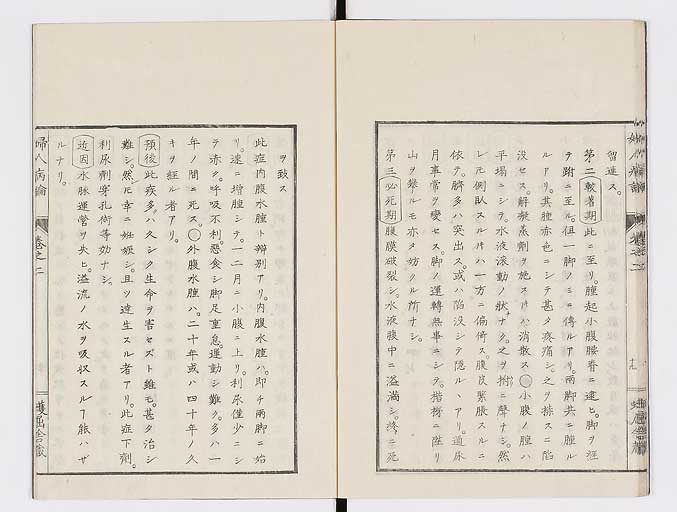 婦人病論
巻之二
留連ス。
第二較著期此ニ至リ。腫起小腹腰脊ニ逮ヒ。脚ヲ經
テ跗ニ至ル。但一脚ノミニ傳ルアリ。兩脚共ニ腫ル
ルアリ。其腫赤色ニシテ甚タ疼痛シ。之ヲ捺スニ陷
沒セス。解凝蒸劑ヲ施スハ消散ス○小腹ノ腫ハ
平場ニシテ。水液滾動ノ狀ナク。之ヲ拊ニ聲ナシ。然
レ側臥スルハ一方ニ偏倚ス腹皮緊脹スルニ
依テ。臍多ハ突出ス。或ハ陷沒シテ隱ルヽアリ。通尿
月事常ヲ變セス。脚ノ運轉無事ニシテ。階梯ニ陞リ
山ヲ攀ルモ亦タ妨ク所ナシ。
第三必死期腹膜破裂シ。水液腹中ニ溢滿シ。終ニ死
ヲ致ス
此症内腹水腫ト辨別アリ。内腹水腫ハ。即チ兩脚ニ始
リ。速ニ增腫シテ。一二月ニ小腹ニ上リ。利尿僅少ニシ
テ赤ク。呼吸不利。惡食シ脚足重怠。運動シ難ク。多ハ一
年ノ間ニ死ス。○外腹水腫ハ。二十年或ハ四十年ノ久
キヲ經ル者アリ。
預後此疾多ハ久シク生命ヲ害セズト雖モ。甚タ治シ
難シ。然ニ幸ニ妊娠シ。且ツ達生スル者アリ。此症下劑。
利尿劑穿孔術等効ナシ。
近因水脉運營ヲ失ヒ。溢流ノ水ヲ吸収スル能ハザ
ルナリ。
婦人病論
巻之二
蠖屈舎藏